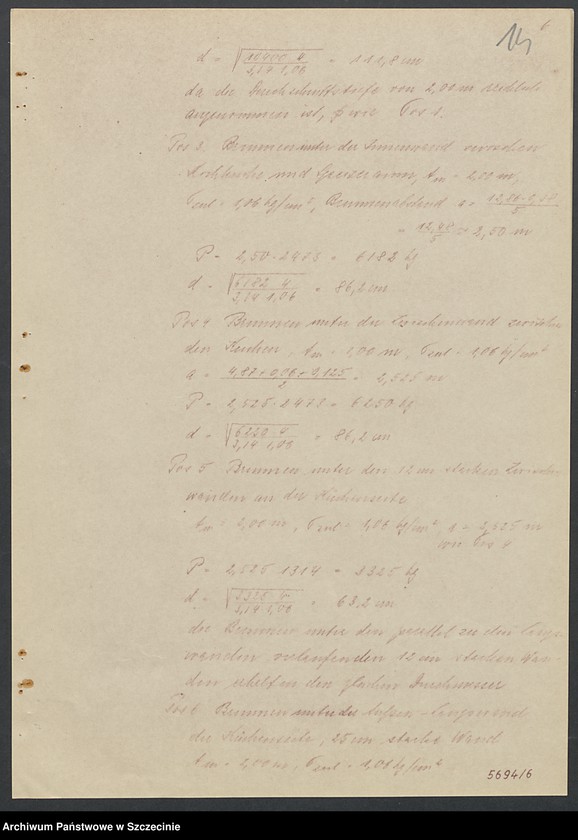 6
d = √(10400·4 / 3,14·1,06) = 111,8 cm
da die Durchschnittstiefe von 2,00 m
angenommen ist, wie Pos 1.
Pos 3. Brunnen unter der Innenwand zwischen
und Speisekammer, tm = 2,00 m,
σzul = 1,06 kg/cm², Brunnenabstand
= 12,48 / 5 = 2,50 m
P = 2,50 · 2473 = 6182 kg
d = √(6182·4 / 3,14·1,06) = 86,2 cm
Pos 4 Brunnen unter der Zwischenwand zwischen
den Küchen, tm = 1,00 m, σzul = 1,06 kg/cm²
a = 4,87+0,06+0,125 / 2 = 2,525 m
P = 2,525 · 2473 = 6250 kg
d = √(6250·4 / 3,14·1,06) = 86,2 cm
Pos 5 Brunnen unter den 12 cm starken Zwischen-
wänden an der Küchenseite
tm = 2,00 m, σzul = 1,06 kg/cm², a = 2,525 m
wie Pos 4
P = 2,525 · 1314 = 3325 kg
d = √(3325·4 / 3,14·1,06) = 63,2 cm
die Brunnen unter den parallel zu den Längs-
wänden verlaufenden 12 cm starken Wän-
den erhalten den gleichen Durchmesser
Pos 6 Brunnen unter der Aussen-Längswand
der Küchenseite, 25 cm starke Wand
tm = 2,00 m, σzul = 1,06 kg/cm²
5694/6
Archiwum Państwowe w Szczecinie